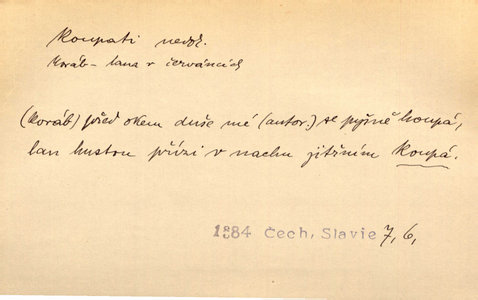 Koupati nedok.
Koráb – lana v červáncích
(Koráb) před okem duše mé (autor.) se pyšně houpá,
lan hustou přízi v nachu jitřním koupá.
1884 Čech, Slavie 7, 6,